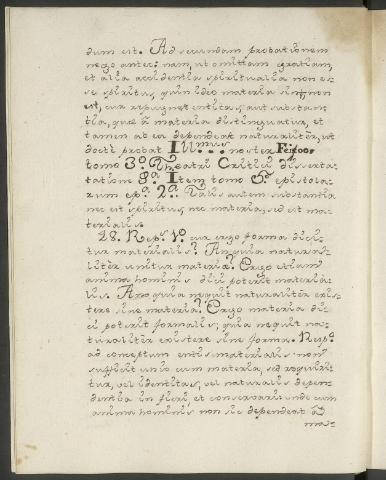 dum est. Ad secundam probationem
nego antec: nam, ut omittam gratiam,
et alia accidentia spiritualia non es-
se spiritus, quin ideo materia sint; non
est, cur repugnet entitas, aut substan-
tia, quæ a materia distinguatur, et
tamen ab ea dependeat naturaliter, ut
docte probat Ill.mus noster Feijoo
tomo 3.º Theatri Critici disserta-
tatione 8.ª Item tomo epistola-
rum ep.ª 2.ª Talis autem substantia
nec est spiritus, nec materia, sed est ma-
terialis.
28. Rep.s 1.º cur ergo forma dici-
tur materialis? An quia natural-
liter unitur materiæ? Ergo etiam
anima hominis dici poterit materia-
lis. An quia nequit naturaliter exis-
tere sine materia? Ergo materia di-
ci poterit formalis; quia nequit na-
turaliter existere sine forma. Resp.º
ad conceptum entis materialis non
sufficit unio cum materia, sed requiri-
tur, vel identitas, vel naturalis depen-
dentia in fieri et conservari: unde cum
anima hominis non sic dependeat à
ma-